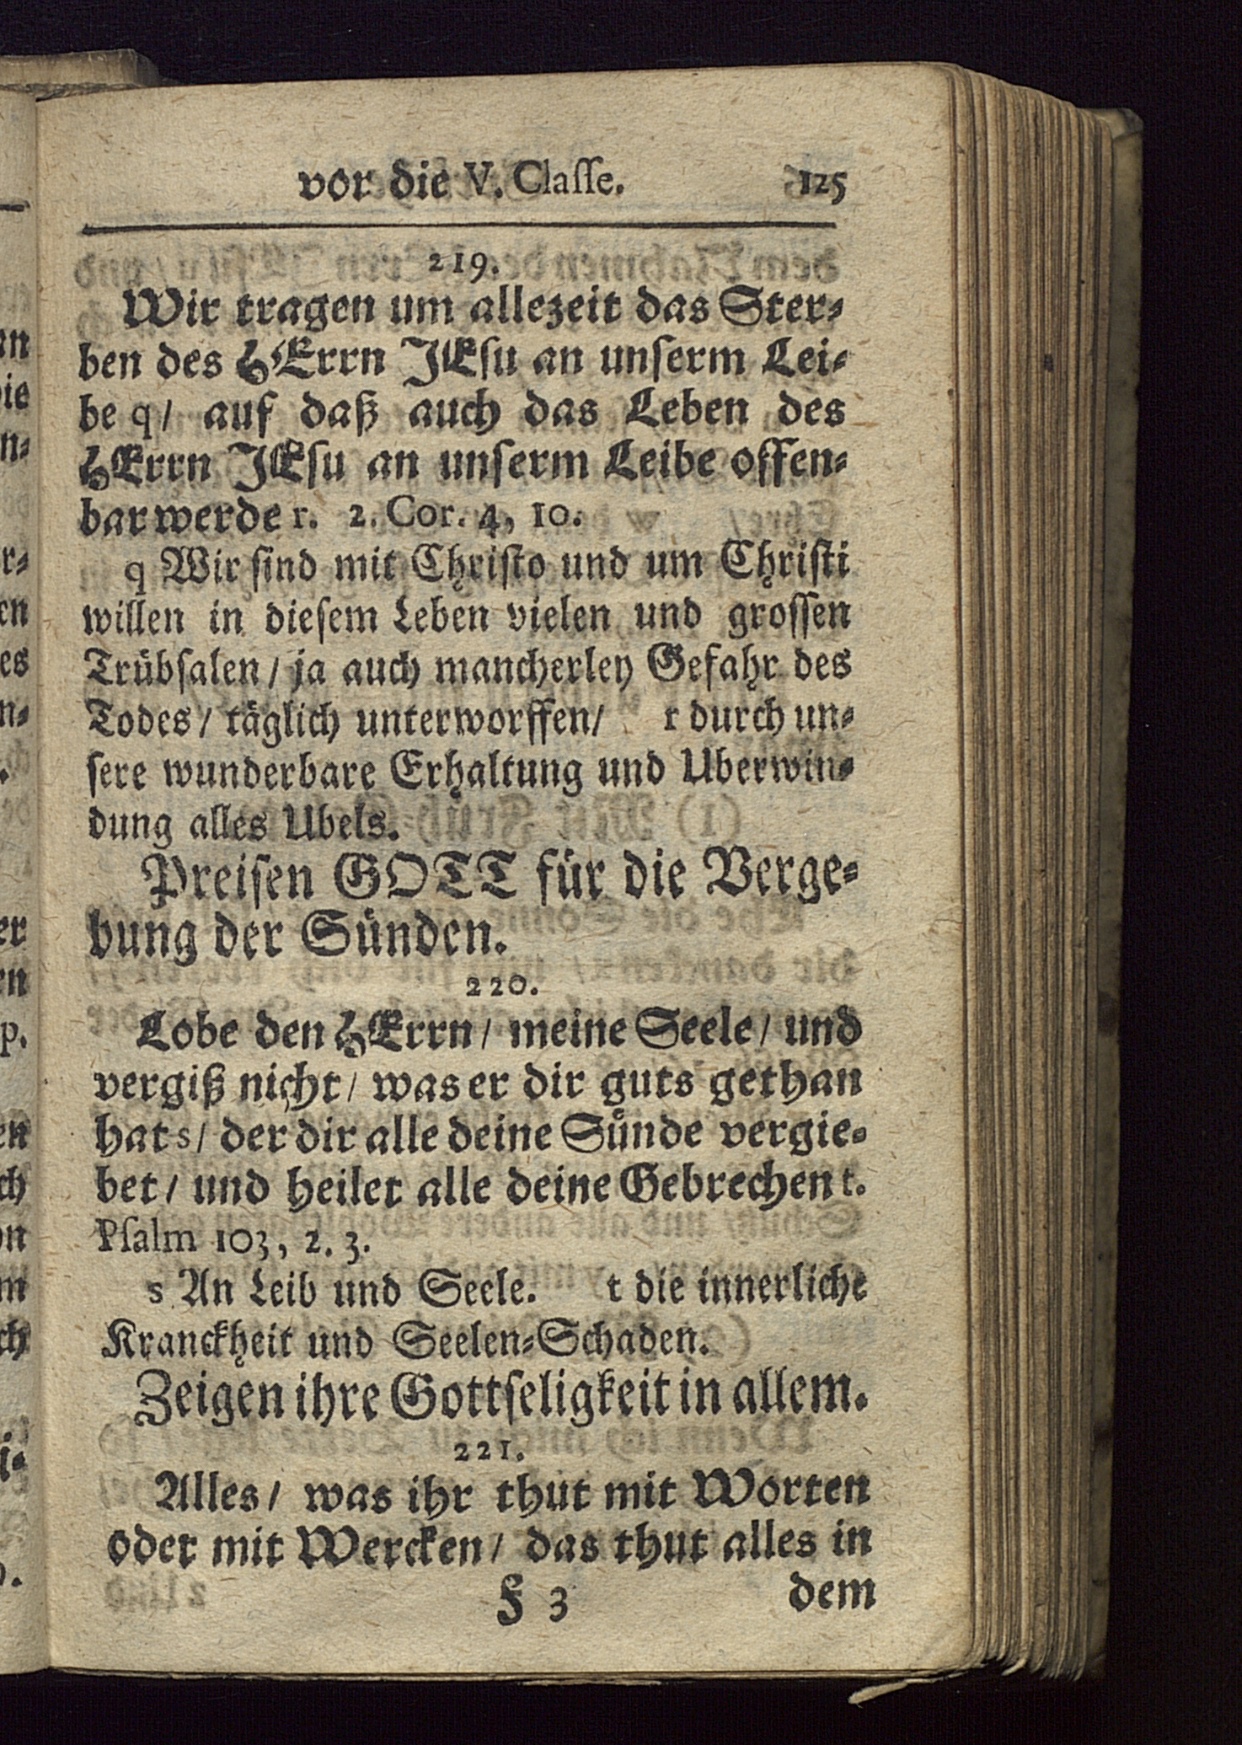 vor die V. Classe. 125
219.
Wir tragen um allezeit das Ster-
ben des HErrn JEsu an unserm Lei-
be q/ auf daß auch das Leben des
HErrn JEsu an unserm Leibe offen-
bar werde r. 2. Cor. 4, 10.
q Wir sind mit Christo und um Christi
willen in diesem Leben vielen und grossen
Trübsalen/ ja auch mancherley Gefahr des
Todes/ täglich unterworffen/ r durch un-
sere wunderbare Erhaltung und Uberwin-
dung alles Ubels.
Preisen GOTT für die Verge-
bung der Sünden.
220.
Lobe den HErrn/ meine Seele/ und
vergiß nicht/ was er dir guts gethan
hat s/ der dir alle deine Sünde vergie-
bet/ und heilet alle deine Gebrechen t.
Psalm 103, 2. 3.
s An Leib und Seele. t die innerliche
Kranckheit und Seelen-Schaden.
Zeigen ihre Gottseligkeit in allem.
221.
Alles/ was ihr thut mit Worten
oder mit Wercken/ das thut alles in
F 3 dem